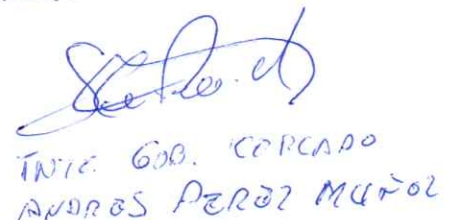 TNTE. GOB. CERCADO
ANDRES PEREZ MUÑOZ